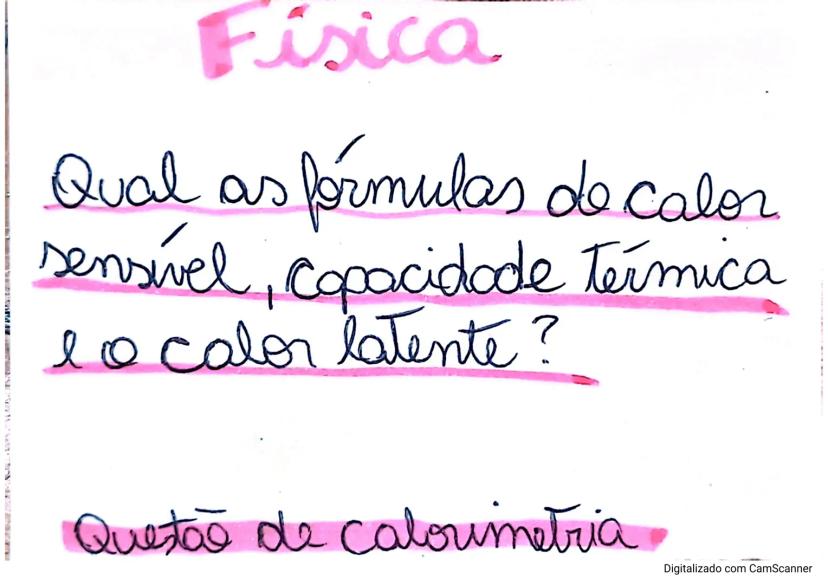 Física
Qual as fórmulas do calor
sensível, capacidade térmica
e o calor latente?
Questão de calorimetria
Digitalizado com CamScanner